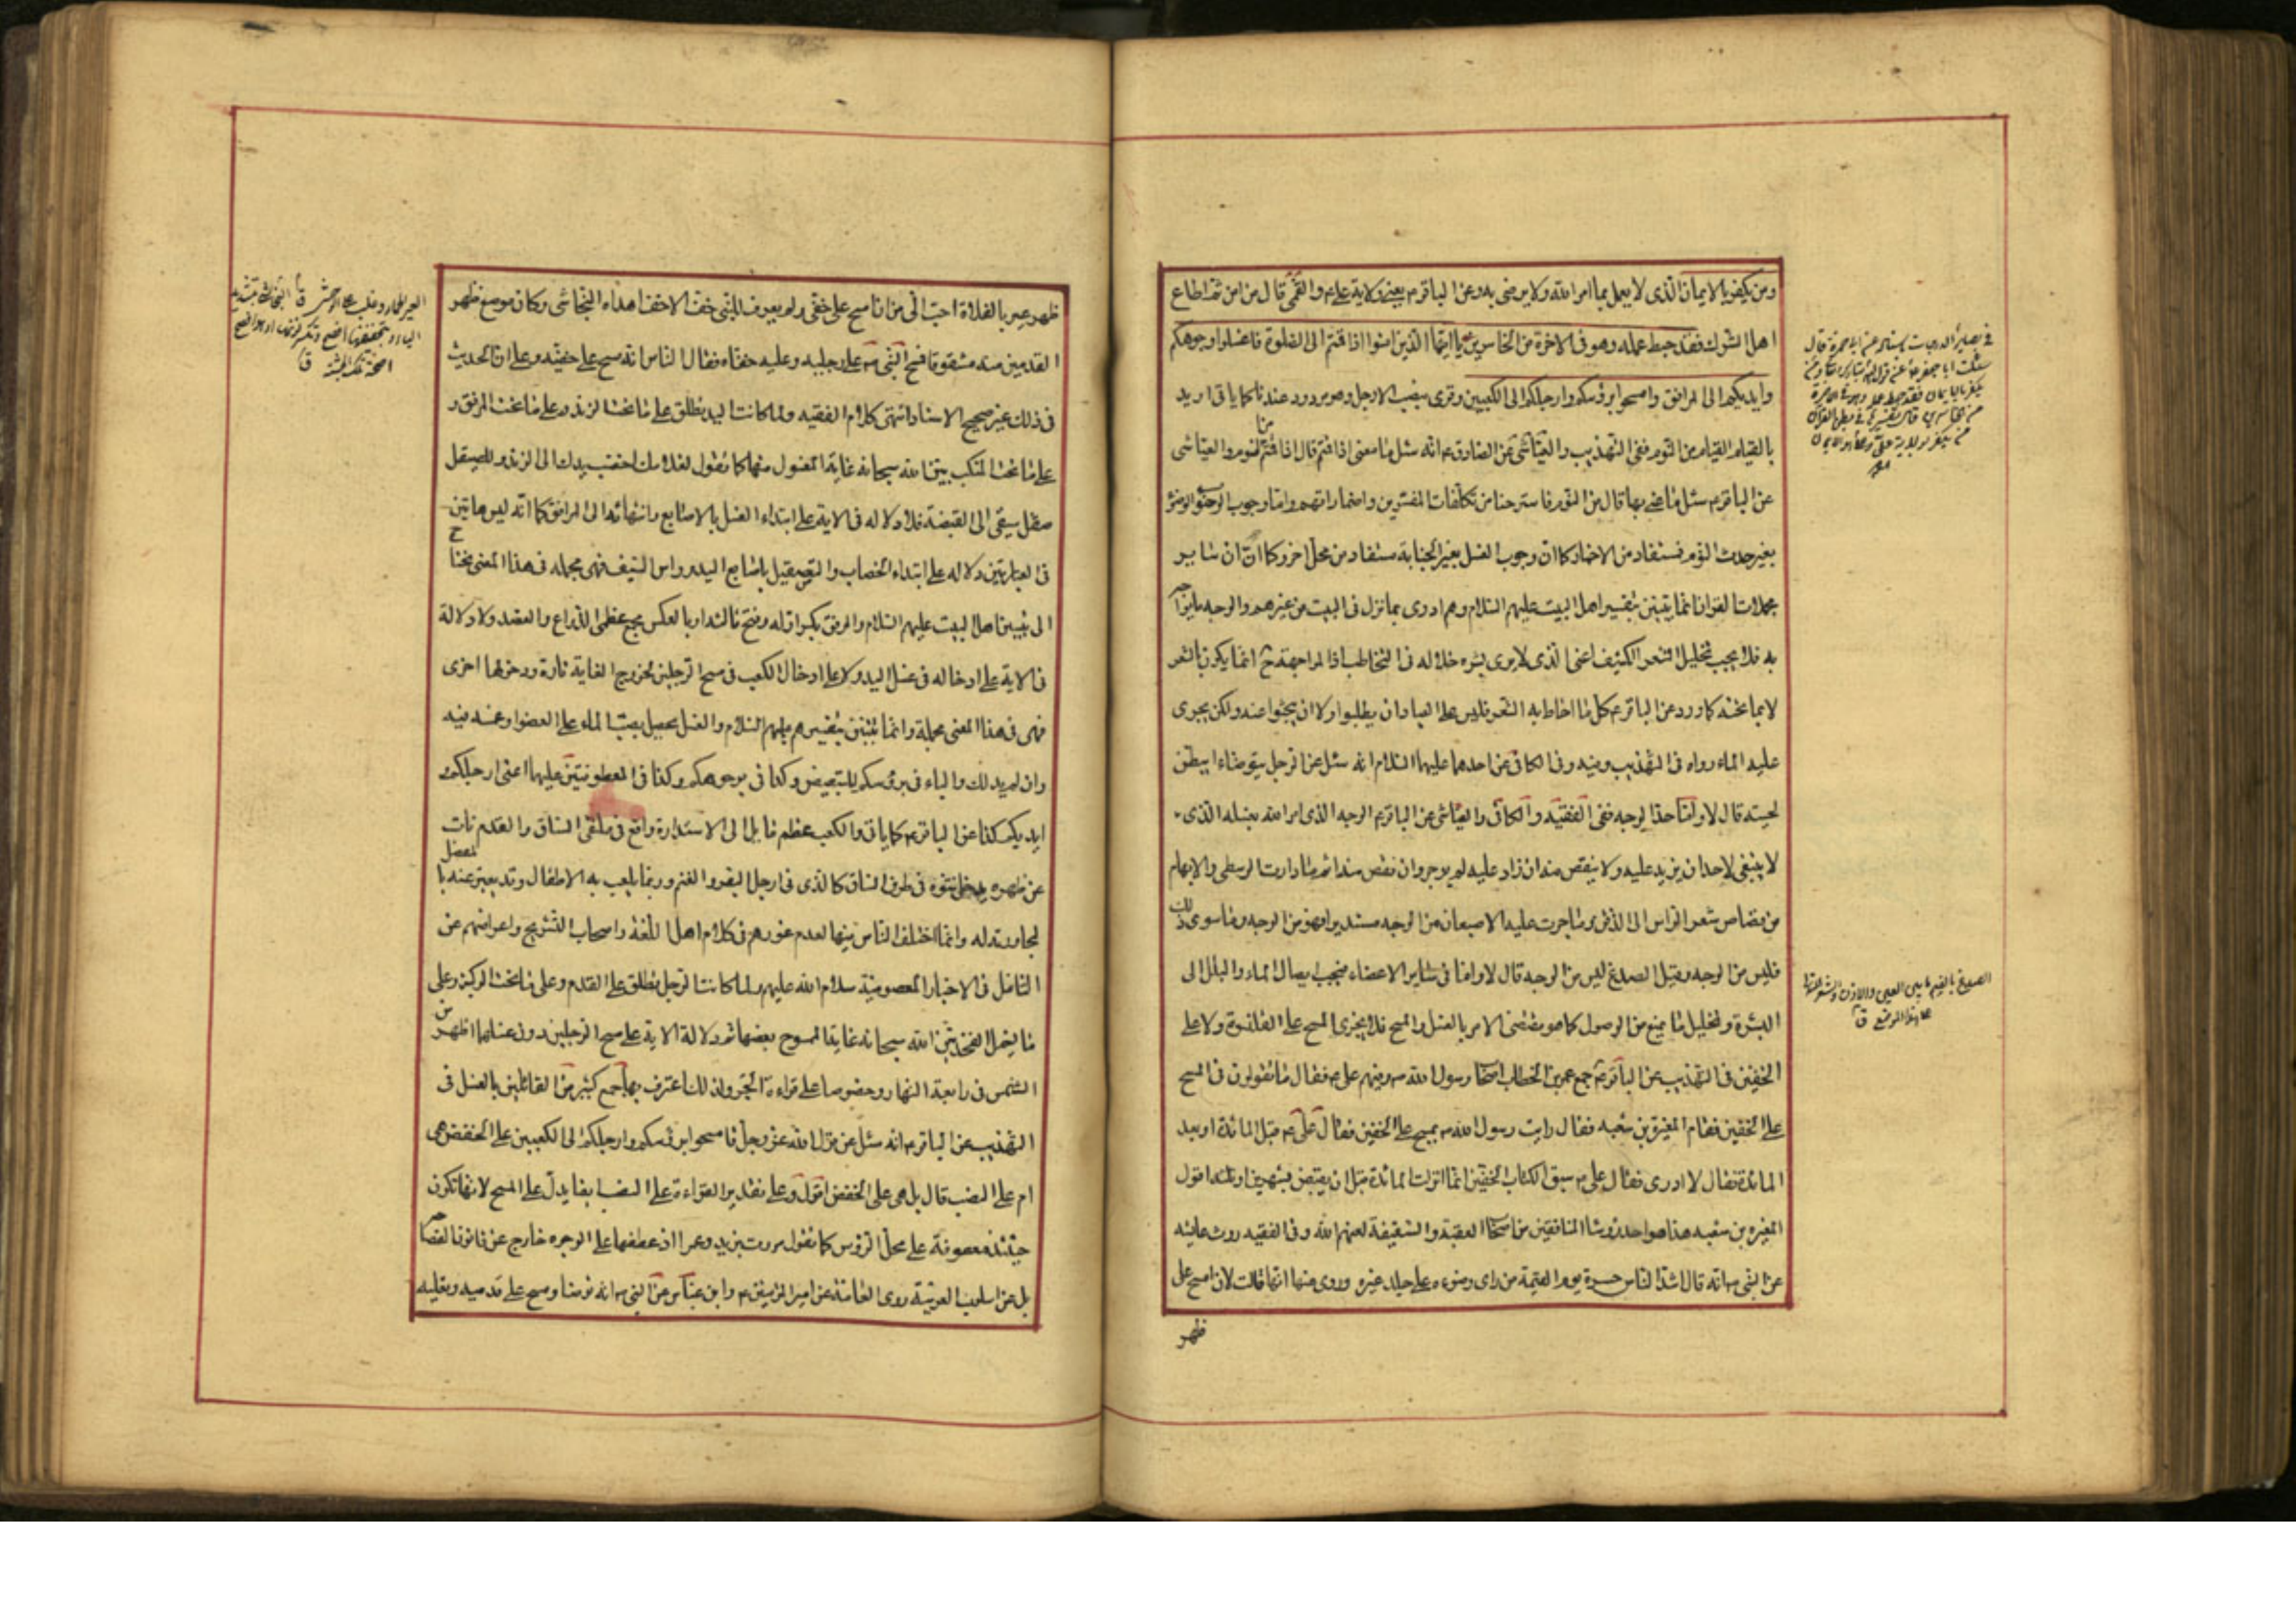 ومن يكفر بالايمان الذى لا يعمل بما امر الله ولا يرضى به وعن الباقر م يعنى ولاية على م والقمى قال من امن ثم اطاع
اهل الشرك فقد حبط عمله وهو فى الاخرة من الخاسرين يا ايها الذين امنوا اذا قمتم الى الصلوة فاغسلوا وجوهكم
وايديكم الى المرافق وامسحوا برؤسكم وارجلكم الى الكعبين وقرى بنصب الارجل وهو مردود عندنا كما ياتى اريد
بالقيام القيام من النوم ففى التهذيب والعياشى عن الصادق م انه سئل ما معنى اذا قمتم قال اذا قمتم من النوم والعياشى
عن الباقر م سئل ما عنى بها قال من النوم فاسترحنا من تكلفات المفسرين واضماراتهم واما وجوب الوضوء
بغير حدث النوم فمستفاد من الاخبار كما ان وجوب الغسل بغير الجنابة مستفاد من محل اخر وكما ان ساير
مجملات القران انما يتبين بتفسير اهل البيت عليهم السلام وهم ادرى بما نزل فى البيت من غيرهم والوجه ما يواجه
به فلا يجب تخليل الشعر الكثيف اعنى الذى لا يرى بشره خلاله فى التخاطب اذ المواجهة ح انما يكون بالشعر
لا بما تحته كما ورد عن الباقر م كل ما احاط به الشعر فليس على العباد ان يطلبوا ولا ان يبحثوا عنه ولكن يجرى
عليه الماء رواه فى التهذيب وفيه وفى الكافى عن احدهما عليهما السلام انه سئل عن الرجل يتوضاء ايبطن
لحيته قال لا واما حد الوجه ففى الفقيه والكافى والعياشى عن الباقر م الوجه الذى امر الله بغسله الذى
لا ينبغى لاحد ان يزيد عليه ولا ينقص منه ان زاد عليه لم يوجر وان نقص منه اثم ما دارت الوسطى والابهام
من قصاص شعر الراس الى الذقن وما جرت عليه الاصبعان من الوجه مستديرا فهو من الوجه وما سوى ذلك
فليس من الوجه وقيل الصدغ ليس من الوجه قال لا واما فى ساير الاعضاء فيجب ايصال الماء والبلل الى
البشرة وتخليل ما يمنع من الوصول كما هو مقتضى الامر بالغسل والمسح فلا يجزى المسح على القلنسوة ولا على
الخفين فى التهذيب عن الباقر م جمع عمر بن الخطاب اصحاب رسول الله ص وفيهم على م فقال ما تقولون فى المسح
على الخفين فقام المغيرة بن شعبه فقال رايت رسول الله ص يمسح على الخفين فقال على م قبل المائدة او بعد
المائدة فقال لا ادرى فقال على م سبق الكتاب الخفين انما انزلت المائدة قبل ان يقبض بشهرين او ثلثه اقول
المغيره بن شعبه هذا هو احد رؤسا المنافقين من اصحاب العقبة والسقيفة لعنهم الله وفى الفقيه روت عايشه
عن النبى ص انه قال اشد الناس حسرة يوم القيمة من راى وضوءه على جلد غيره وروى عنها انها قالت لان امسح على
ظهر
فى بصاير الدرجات باسناده عن ابى حمزة قال
سئلت ابا جعفر م عن قول الله تبارك وتعالى ومن
يكفر بالايمان فقد حبط عمله وهو فى الاخرة
من الخاسرين قال تفسيرها فى بطن القران
من يكفر بولاية على وعلى هو الايمان
الصدغ بالضم ما بين العين والاذن والشعر المتدلى
على هذا الموضع ق
ظهر عير بالفلاة احب الى من ان امسح على خفى ولم يعرف للنبى خف الا خفا اهداه النجاشى وكان موضع ظهر
القدمين منه مشقوقا فمسح النبى ص على رجليه وعليه خفاه فقال الناس انه مسح على خفيه وعلى ان الحديث
فى ذلك غير صحيح الاسناد انتهى كلام الفقيه ولما كانت اليد يطلق على ما تحت الزند وعلى ما تحت المرفق و
على ما تحت المنكب بين الله سبحانه غاية المغسول منها كما تقول لغلامك اخضب يدك الى الزند وللصيقل
صقل سيفى الى القبضة فلا دلاله فى الاية على ابتداء الغسل بالاصابع وانتهائه الى المرافق كما انه ليس هاتين
فى العبارتين دلاله على ابتداء الخضاب والتصقيل باصابع اليد وراس السيف فهى مجمله فى هذا المعنى يحتاج
الى تبيين اهل البيت عليهم السلام والمرفق بكسر اوله وفتح ثالثه او بالعكس مجمع عظمى الذراع والعضد ولا دلالة
فى الاية على ادخاله فى غسل اليد ولا على ادخال الكعب فى مسح الرجلين لخروج الغاية تارة ودخولها اخرى
فهى فى هذا المعنى مجملة وانما تتبين بتفسيرهم عليهم السلام والغسل يحصل بصب الماء على العضو او غمسه فيه
وان لم يدلك والباء فى برؤسكم للتبعيض وكذا فى بوجوهكم وكذا فى المعطوفتين عليهما اعنى ارجلكم و
ايديكم كذا عن الباقر م كما ياتى والكعب عظم مايل الى الاستدارة واقع فى ملتقى الساق والقدم نات
عن ظهره يدخل نتوه فى طرف الساق كالذى فى ارجل البقر والغنم وربما يلعب به الاطفال وقد يعبر عنه بالمفصل
لمجاورته له وانما اختلف الناس فيها لعدم غورهم فى كلام اهل اللغة واصحاب التشريح واعراضهم عن
التامل فى الاخبار المعصومية سلام الله عليهم ولما كانت الرجل يطلق على القدم وعلى ما تحت الركبة وعلى
ما يشمل الفخذ بين الله سبحانه غاية الممسوح بعضها ثم دلالة الاية على مسح الرجلين دون غسلهما اظهر من
الشمس فى رابعة النهار وخصوصا على قراءة الجر ولذلك اعترف بها جمع كثير من القائلين بالغسل فى
التهذيب عن الباقر م انه سئل عن قول الله عز وجل فامسحوا برؤسكم وارجلكم الى الكعبين على الخفض هى
ام على النصب قال بل هى على الخفض اقول وعلى تقدير القراءة على النصب ايضا يدل على المسح لانها تكون
حينئذ معطوفة على محل الرؤس كما تقول مررت بزيد وعمرا اذ عطفها على الوجوه خارج عن قانون الفصاحة
بل عن اسلوب العربية روى العامة عن امير المؤمنين م وابن عباس عن النبى ص انه توضا ومسح على قدميه ونعليه
العير الحمار وغلب على الوحشى ق